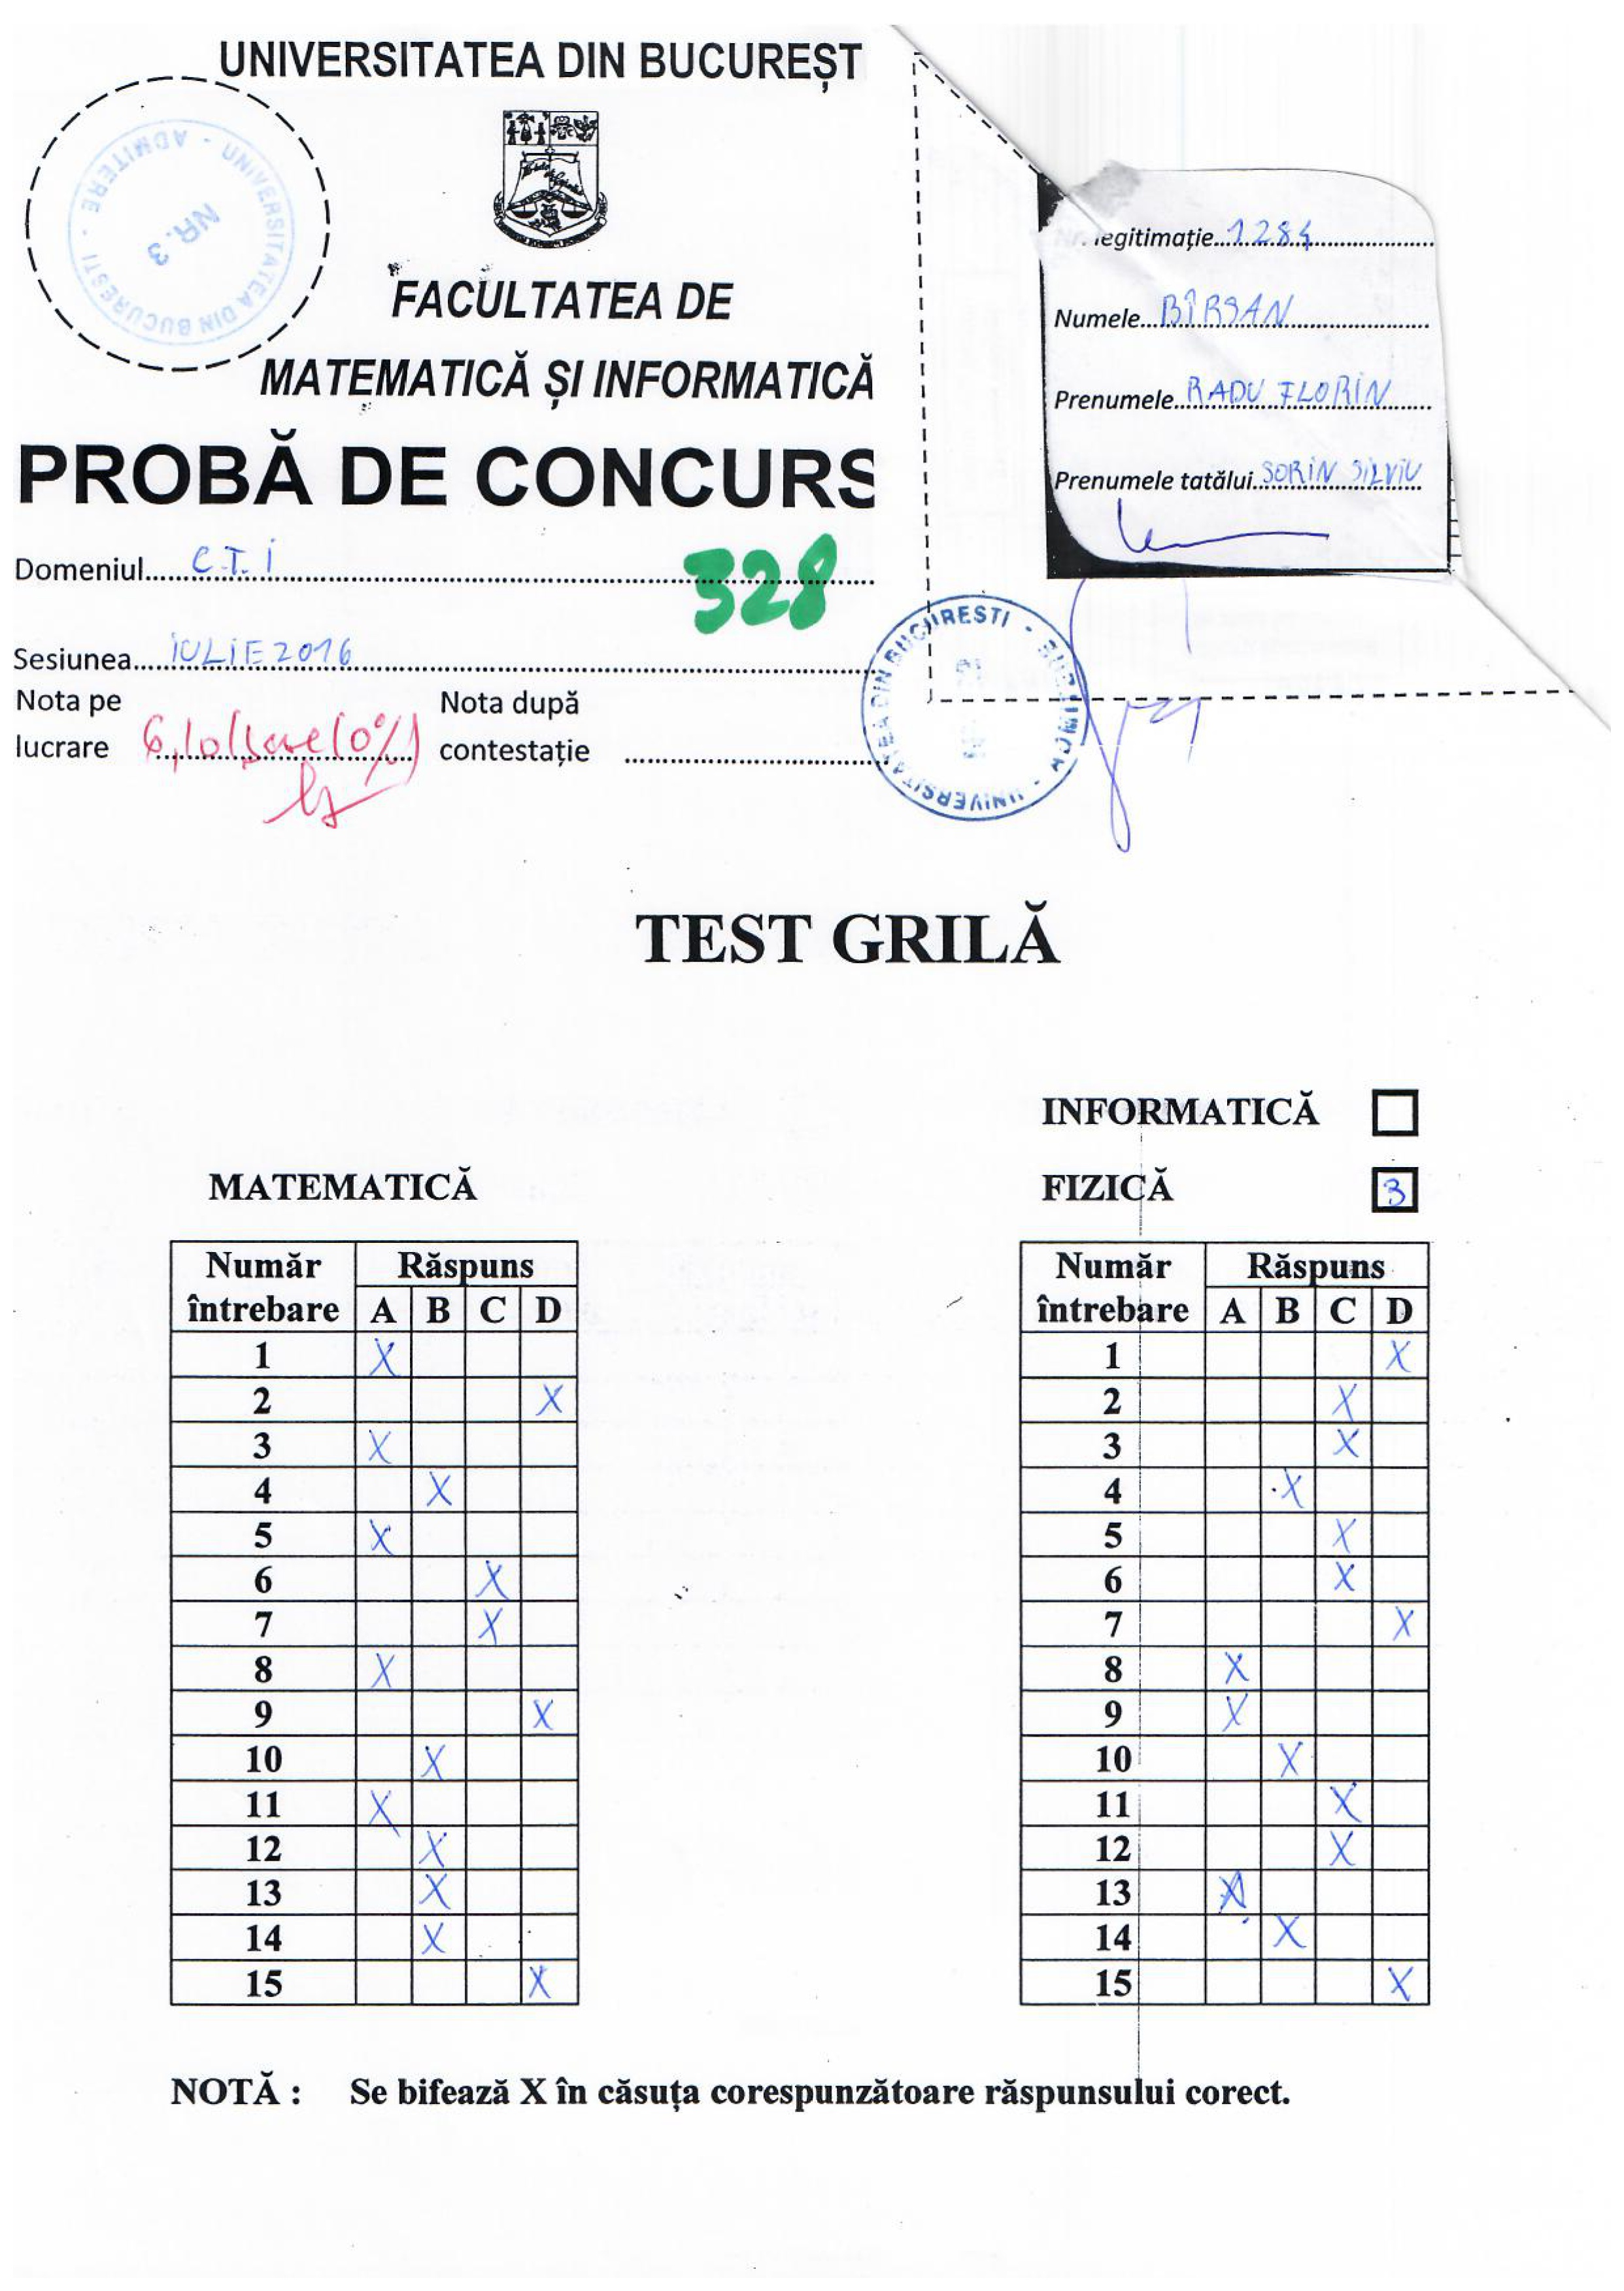 UNIVERSITATEA DIN BUCUREȘT
UNIVERSITATEA DIN BUCURESTI - ADMITERE -
NR. 3
FACULTATEA DE
MATEMATICĂ ȘI INFORMATICĂ
PROBĂ DE CONCURS
Domeniul C.T.I
328
Sesiunea IULIE 2016
Nota pe
lucrare 6,10 (0%)
Nota după
contestație
Nr. legitimație 1284
Numele BÎRSAN
Prenumele RADU FLORIN
Prenumele tatălui SORIN SILVIU
TEST GRILĂ
INFORMATICĂ
MATEMATICĂ
FIZICĂ 3
Număr întrebare Răspuns
A B C D
1 X
2 X
3 X
4 X
5 X
6 X
7 X
8 X
9 X
10 X
11 X
12 X
13 X
14 X
15 X
Număr întrebare Răspuns
A B C D
1 X
2 X
3 X
4 X
5 X
6 X
7 X
8 X
9 X
10 X
11 X
12 X
13 X
14 X
15 X
NOTĂ : Se bifează X în căsuța corespunzătoare răspunsului corect.